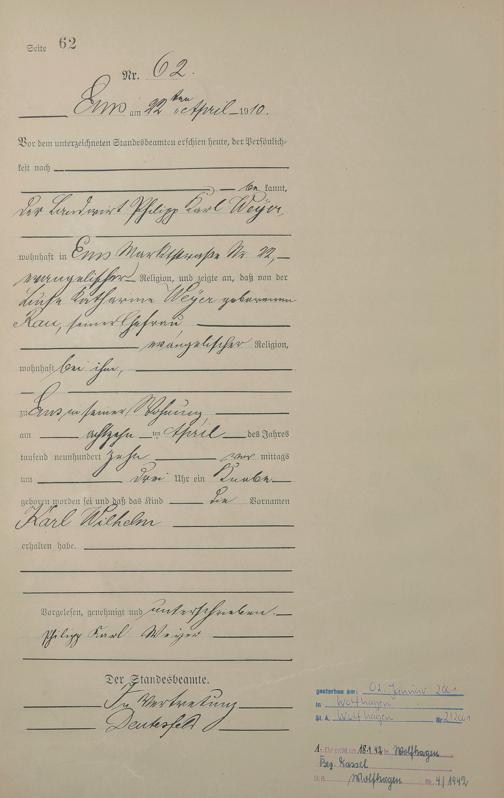 Seite 62
Nr. 62.
Ems am 22ten April 1910.
Vor dem unterzeichneten Standesbeamten erschien heute, der Persönlich-
keit nach
be kannt,
der Landwirt Philipp Karl Weyer,
wohnhaft in Ems Marktstraße Nr. 22,
evangelischer Religion, und zeigte an, daß von der
Luise Katharine Weyer geborenen
Rau, seiner Ehefrau
evangelischer Religion,
wohnhaft bei ihm,
zu Ems in seiner Wohnung
am achtzehn ten April des Jahres
tausend neunhundert zehn vor mittags
um drei Uhr ein Knabe
geboren worden sei und daß das Kind die Vornamen
Karl Wilhelm
erhalten habe.
Vorgelesen, genehmigt und unterschrieben
Philipp Karl Weyer
Der Standesbeamte.
In Vertretung
gestorben am: 02. Januar 2001
in Wolfhagen
St. A. Wolfhagen Nr.
1. Eheschl. am 18.1.42 in Wolfhagen
Bez. Kassel
Wolfhagen Nr. 4/1942